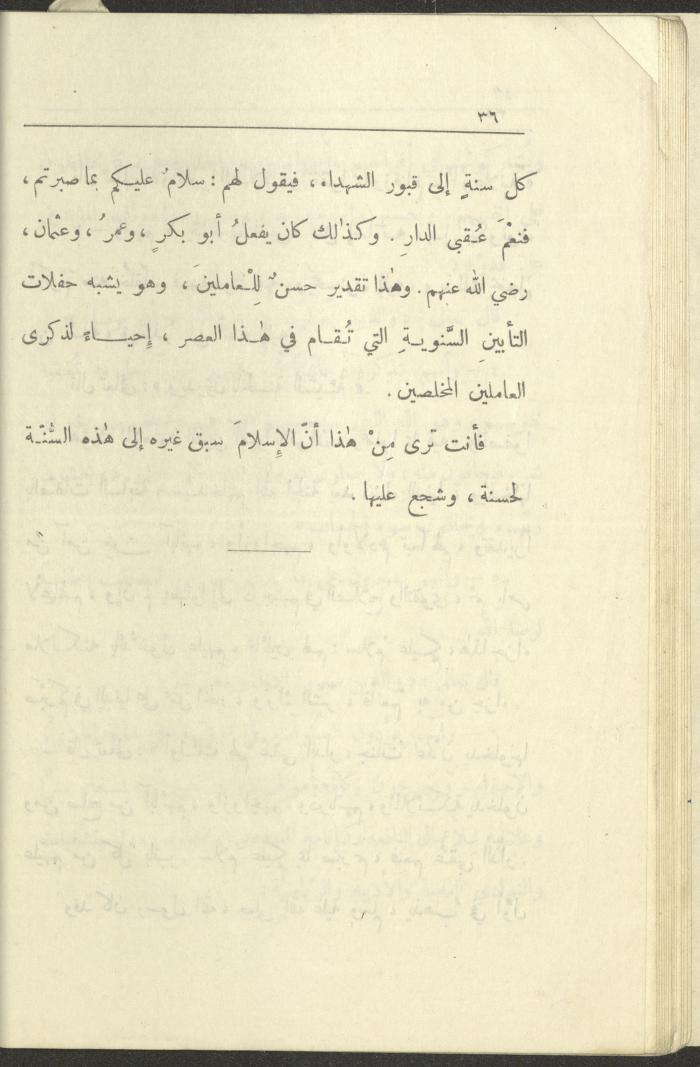 ٣٦
كل سنةٍ إلى قبور الشهداء، فيقول لهم: سلامٌ عليكم بما صبرتم،
فنعْمَ عُقبى الدارِ. وكذٰلك كان يفعلُ أبو بكرٍ، وعمرُ، وعثمان،
رضي الله عنهم. وهٰذا تقدير حسنٌ لِلْعاملينَ، وهو يشبه حفلات
التأبينِ السَّنويةِ التي تُقام في هٰذا العصر، إحياءً لذكرى
العاملين المخلصين.
فأنت ترى مِنْ هٰذا أنّ الإِسلامَ سبق غيره إلى هٰذه السُّنّة
لحسنة، وشجع عليها.